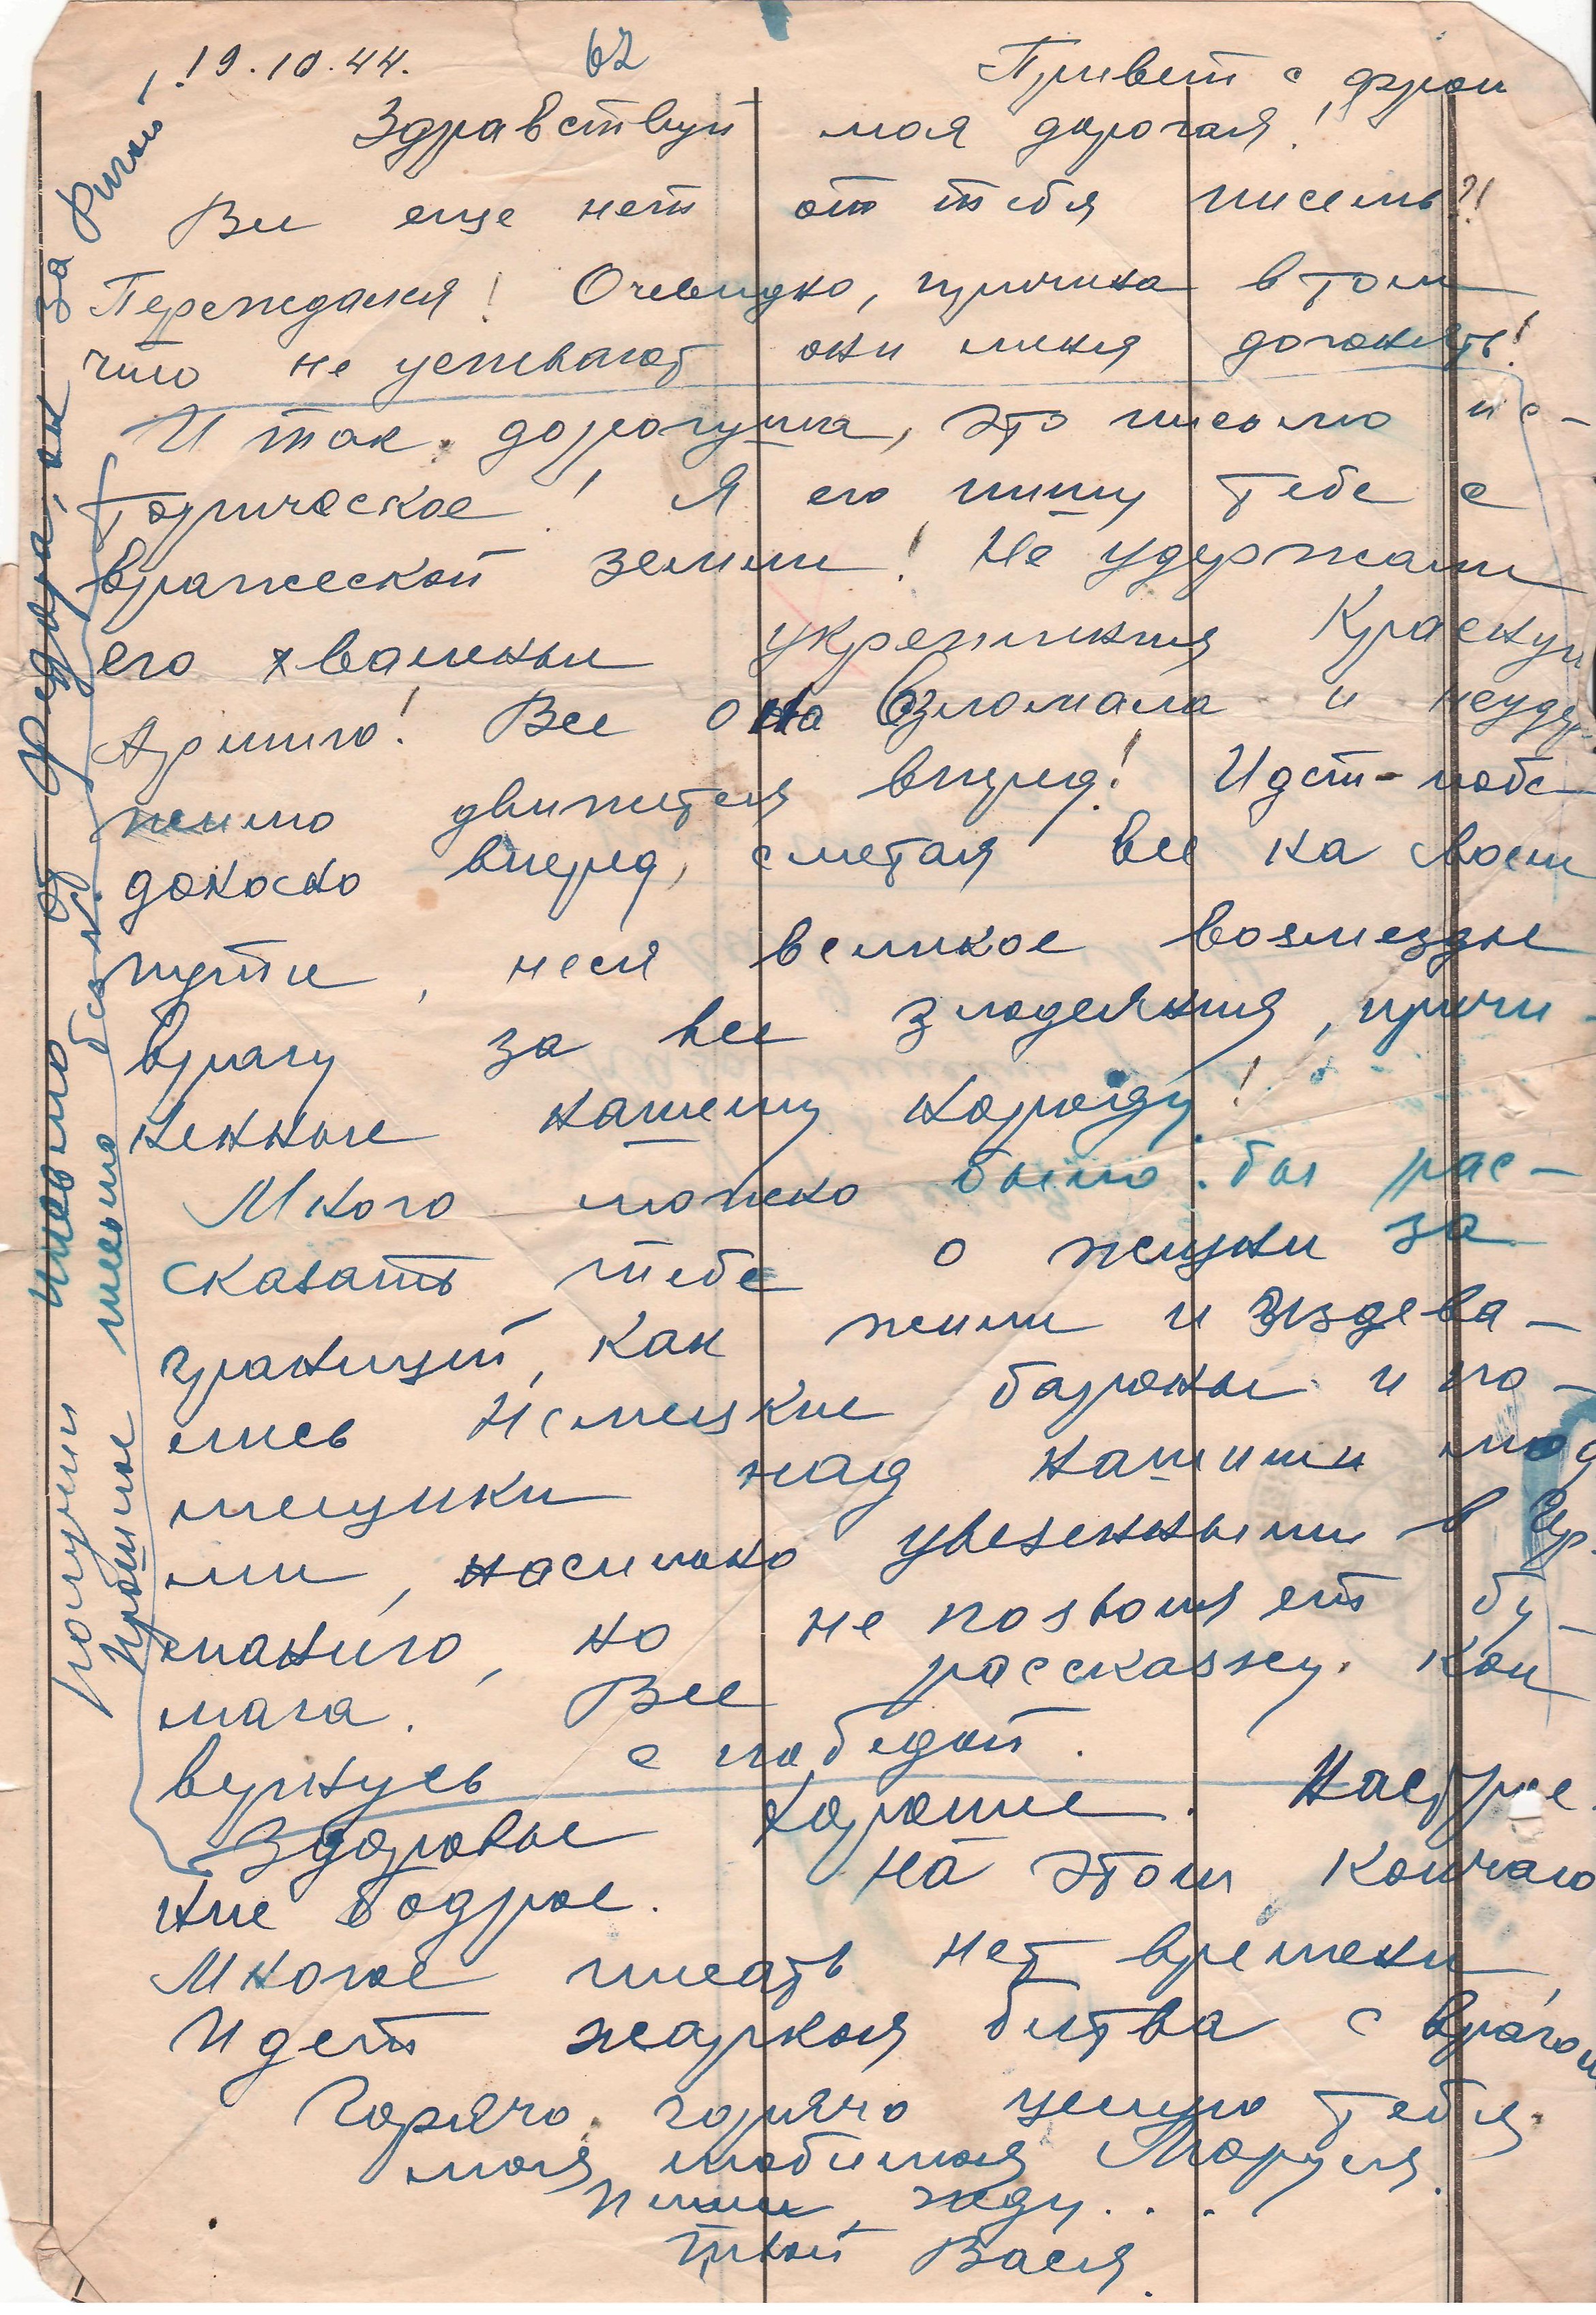 19.10.44. 62 Привет с фрон
Здравствуй моя дорогая!
Все еще нет от тебя писем?!
Переждался! Очевидно, причина в том
что не успевают они меня догонять!
И так, дорогуша, это письмо ис-
торическое! Я его пишу тебе с
вражеской земли! Не удержали
его хваленые укрепления Красную
Армию! Все она взломала и неудер
жимо движется вперед! Идет побе-
доносно вперед, сметая все на своем
пути, неся великое возмездие
врагу за все злодеяния, причи-
ненные нашему народу!
Много можно было бы рас-
сказать тебе о жизни за
границей, как жили и издева-
лись немецкие бароны и по-
мещики над нашими людь
ми, насильно увезенными в Гер-
манию, но не позволяет бу-
мага. Все расскажу. Как
вернусь с победой.
Здоровье хорошее. Настрое
ние бодрое. На этом кончаю
Многое писать нет времени,
Идет жаркая битва с врагом
Горячо, горячо целую тебя.
моя любимая Маруся.
Пиши, жду...
твой Вася.
Получил письмо от Федора, он за Ригой!
Прошлое письмо было